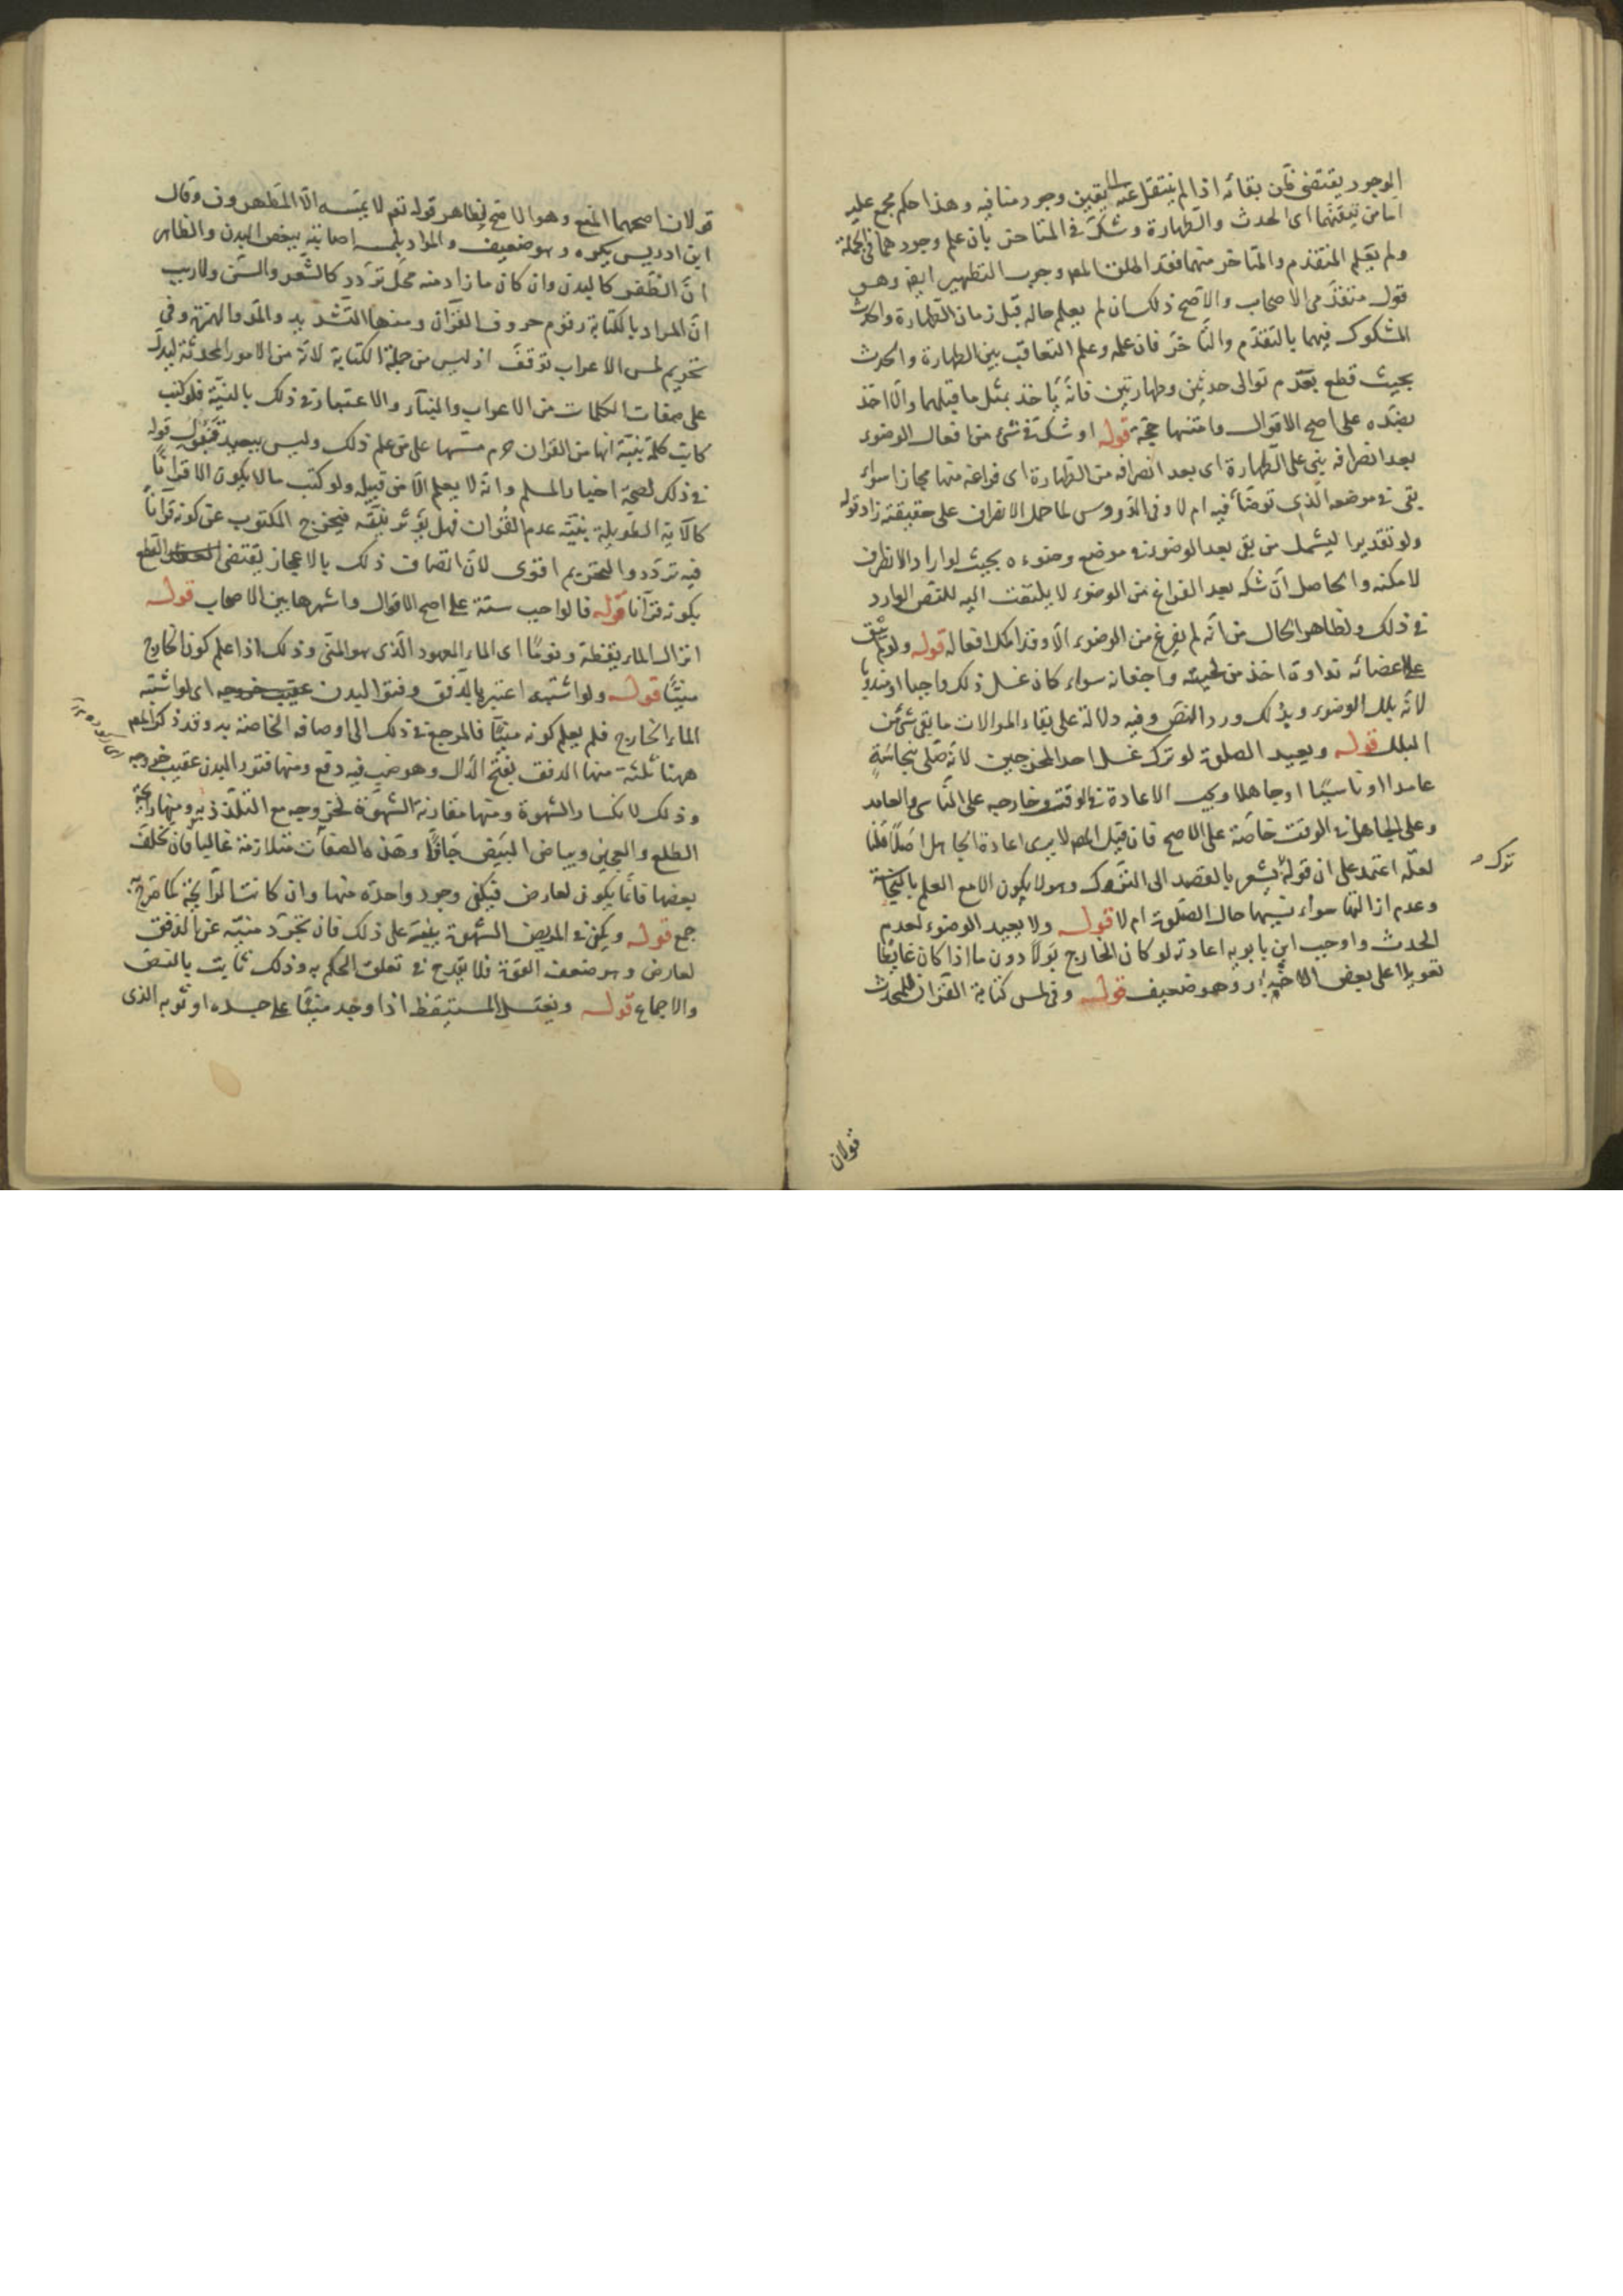 الوجود يقتضى ظن بقائه اذا لم ينتقل عنه الى يقين وجود منافيه وهذا حكم مجمع عليه
اما من تيقنهما اى الحدث والطهارة وشك فى المتاخر بان علم وجودهما فى الجملة
ولم يعلم المتقدم والمتاخر منهما فقد اطلق المص وجوب التطهير ايض وهو
قول متقدمى الاصحاب والاصح ذلك ان لم يعلم حاله قبل زمان الطهارة والحدث
المشكوك فيهما بالتقدم والتاخر فان علمه وعلم التعاقب بين الطهارة والحدث
بحيث قطع بعدم توالى حدثين وطهارتين فانه ياخذ بمثل ما قبلهما والا اخذ
بضده على اصح الاقوال وامتنها حجة قوله او شك فى شئ من افعال الوضوء
بعد انصرافه بنى على الطهارة اى بعد انصرافه من الطهارة اى فراغه منها مجازا سواء
بقى فى موضعه الذى توضأ فيه ام لا وفى الدروس لما حمل الانصراف على حقيقته زاد قوله
ولو تقديرا ليشمل من بقى بعد الوضوء فى موضع وضوءه بحيث لو اراد الانصراف
لامكنه والحاصل ان شكه بعد الفراغ من الوضوء لا يلتفت اليه للنص الوارد
فى ذلك ولظاهر الحال من انه لم يفرغ من الوضوء الا وقد اكمل افعاله قوله ولو لم تبق
على اعضائه نداوة اخذ من لحيته واجفانه سواء كان غسل ذلك واجبا او مندوبا
لانه بلل الوضوء وبذلك ورد النص وفيه دلالة على بقاء الموالات ما بقى شئ من
البلل قوله ويعيد الصلوة لو ترك غسل احد المخرجين لانه صلى بنجاسة
عامدا او ناسيا او جاهلا ويجب الاعادة فى الوقت وخارجه على الناسى والعامد
وعلى الجاهل فى الوقت خاصة على الاصح فان قيل المص لا يرى اعادة الجاهل اصلا قلنا
لعله اعتمد على ان قوله يشعر بالقصد الى التروك وهو لا يكون الا مع العلم بالنجاسة
ترك صـ
وعدم ازالتها سواء نسيها حال الصلوة ام لا قوله ولا يعيد الوضوء لعدم
الحدث واوجب ابن بابويه اعادته لو كان الخارج بولا دون ما اذا كان غائطا
تعويلا على بعض الاخبار وهو ضعيف قوله وفى لمس كتابة القران للمحدث
قولان
قولان اصحهما المنع وهو الاصح لظاهر قوله تعم لا يمسه الا المطهرون وقال
ابن ادريس يكره وهو ضعيف والمراد بلمسه اصابته ببعض البدن والظاهر
ان الظفر كالبدن وان كان ما زاد منه محل تردد كالشعر والسن ولا ريب
ان المراد بالكتابة رقوم حروف القرآن ومنها التشديد والمد والهمزة وفى
تحريم لمس الاعراب توقف اذ ليس من جملة الكتابة لانه من الامور المحدثة ليدل
على صفات الكلمات من الاعراب والبناء والاعتبار فى ذلك بالنية فلو كتب
كاتب كلمة بنية انها من القران حرم مسها على من علم ذلك وليس ببعيد قبول قوله
فى ذلك لصحة اخبار المسلم وانه لا يعلم الا من قبله ولو كتب ما لا يكون الا قرانا
كالآية الطويلة بنية عدم القران فهل يؤثر نيته فيخرج المكتوب عن كونه قرآنا
فيه تردد والتحريم اقوى لان اتصاف ذلك بالاعجاز يقتضى القطع
بكونه قرآنا قوله فالواجب ستة على اصح الاقوال واشهرها بين الاصحاب قوله
انزال الماء يقظة ونوما اى الماء المعهود الذى هو المنى وذلك اذا علم كون الخارج
منيا قوله ولو اشتبه اعتبر بالدفق وفتور البدن عقيب خروجه اى لو اشتبه
الماء الخارج فلم يعلم كونه منيا فالمرجع فى ذلك الى اوصافه الخاصة به وقد ذكر المص
ههنا ثلثة منها الدفق بفتح الدال وهو صب فيه دفع ومنها فتور البدن عقيب خروجه
وذلك لانكسار الشهوة ومنها مقارنة الشهوة لخروجه مع التلذذ به ومنها رائحة
الطلع والعجين وبياض البيض جافا وهذه الصفات متلازمة غالبا فان تخلف
بعضها فانما يكون لعارض فيكفى وجود واحدة منها وان كانت الرائحة كما صرح به
جمع قوله ويكفى فى المريض الشهوة بنية على ذلك فان تجرد منيه عن الدفق
لعارض وهو ضعف القوة فلا يقدح فى تعلق الحكم به وذلك ثابت بالنص
والاجماع قوله ويغتسل المستيقظ اذا وجد منيا على جسده او ثوبه الذى